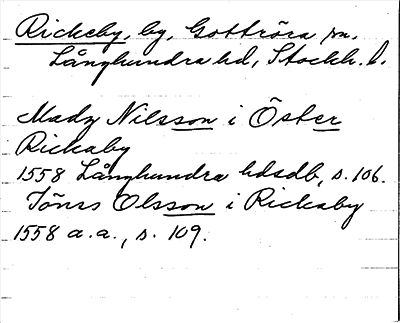 Rickeby, by, Gottröra sn,
Långhundra hd, Stockh. l.
Mady Nilsson i Öster
Rickaby
1558 Långhundra hdsdb, s. 106.
Jönss Olsson i Rickaby
1558 a.a., s. 109.